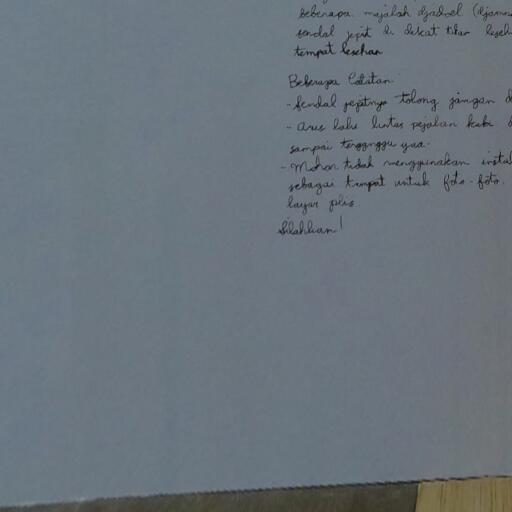 beberapa majalah djadoel (djaman
sendal jepit di dekat tikar leseh
tempat lesehan
Beberapa Catatan
- Sendal jepitnya tolong jangan d
- Arus lalu lintas pejalan kaki
sampai terganggu yaa.
- Mohon tidak menggunakan instal
sebagai tempat untuk foto-foto.
layar plis
Silahkan!